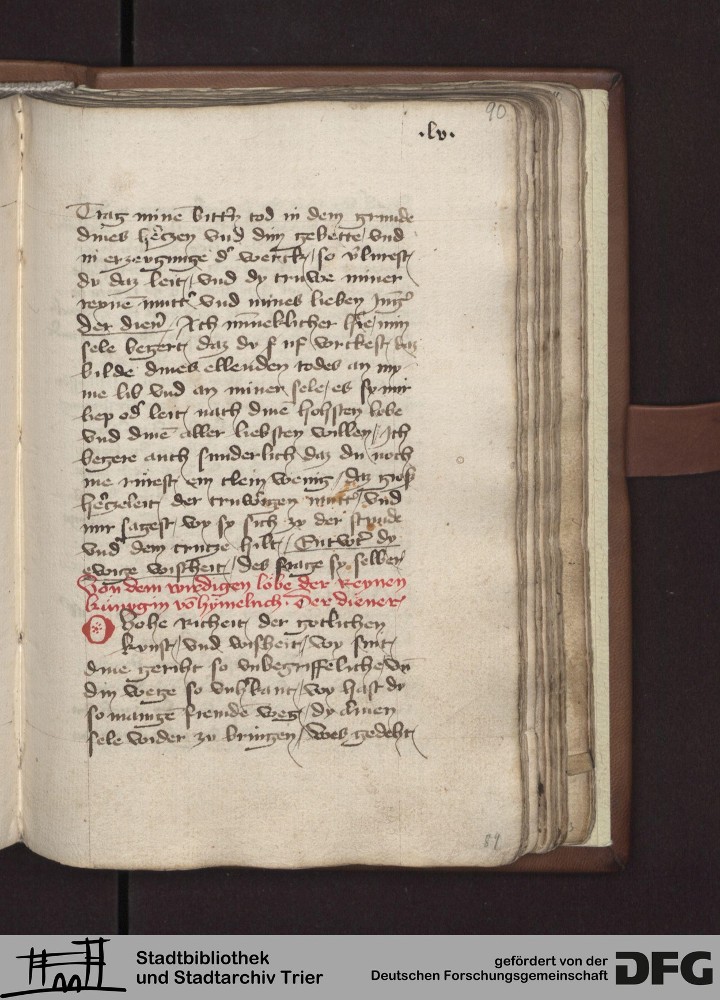 90
·lv·
Trag minē bittʼn tod in dem grunde
dines hʼczen vnd dim gebette vnd
in erzeygunge dʼ werck / so vʼlirest
dv daz leit / vnd dy truwe miner
reynē muttʼ vnd mines lieben Jungʼ
der dienʼ / Ach miñeklicher hʼre / min
sele begert / daz dv f uf vorckest / daz
bilde dines ellenden todes an my
me lib vnd an miner sele / es sy mir
liep odʼ leit / nach dinē hohsten lobe
vnd dinē aller liebsten willen / Ich
begere auch sunderlich daz du noch
me rurest / ein clein wenig / daz groß
hʼczeleit / der truwrigen muttʼ / vnd
mir sagest / wy sy sich zv der stunde
vnd dem crutze hilt / Entwʼt dy
ewige wisheit / des frage sy selber
Von dem wirdigen lobe der Reynen
kúnygin vō hymelrich · Der diener
O hohe richeit / der gotlichen
kunst / vnd wisheit / wy sint
dine geriht so vnbegriffeliche / vn̄
din wege so vnbʼkant / wy hast dv
so manigē fremde weg / dy armen
sele wider zv bringen / wes gedeht
89
Stadtbibliothek
und Stadtarchiv Trier
gefördert von der
Deutschen Forschungsgemeinschaft
DFG